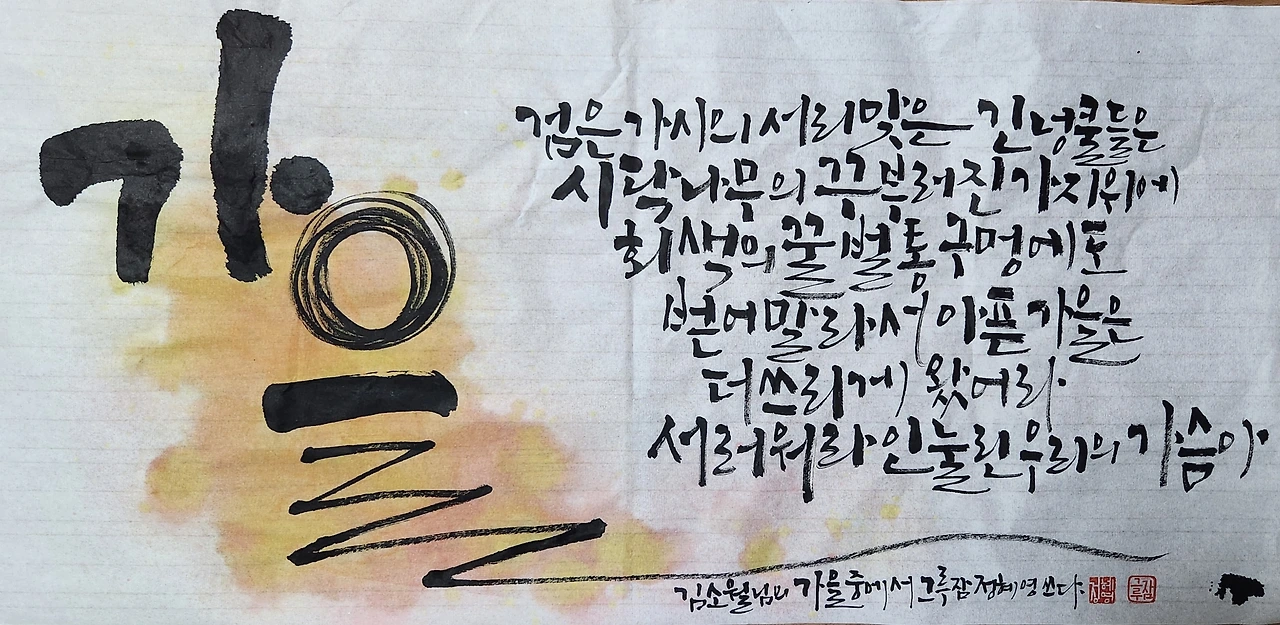 가을
검은가시의 서리맞은 긴넝쿨들은
시닥나무의 꾸부러진가지위에
회색의 꿀벌통구멍에도
번에말라서 아픈가을은
더쓰리게 왔어라
서러워라 인눌린우리의 가슴아
김소월님의 가을중에서 그루잠 정혜영쓰다